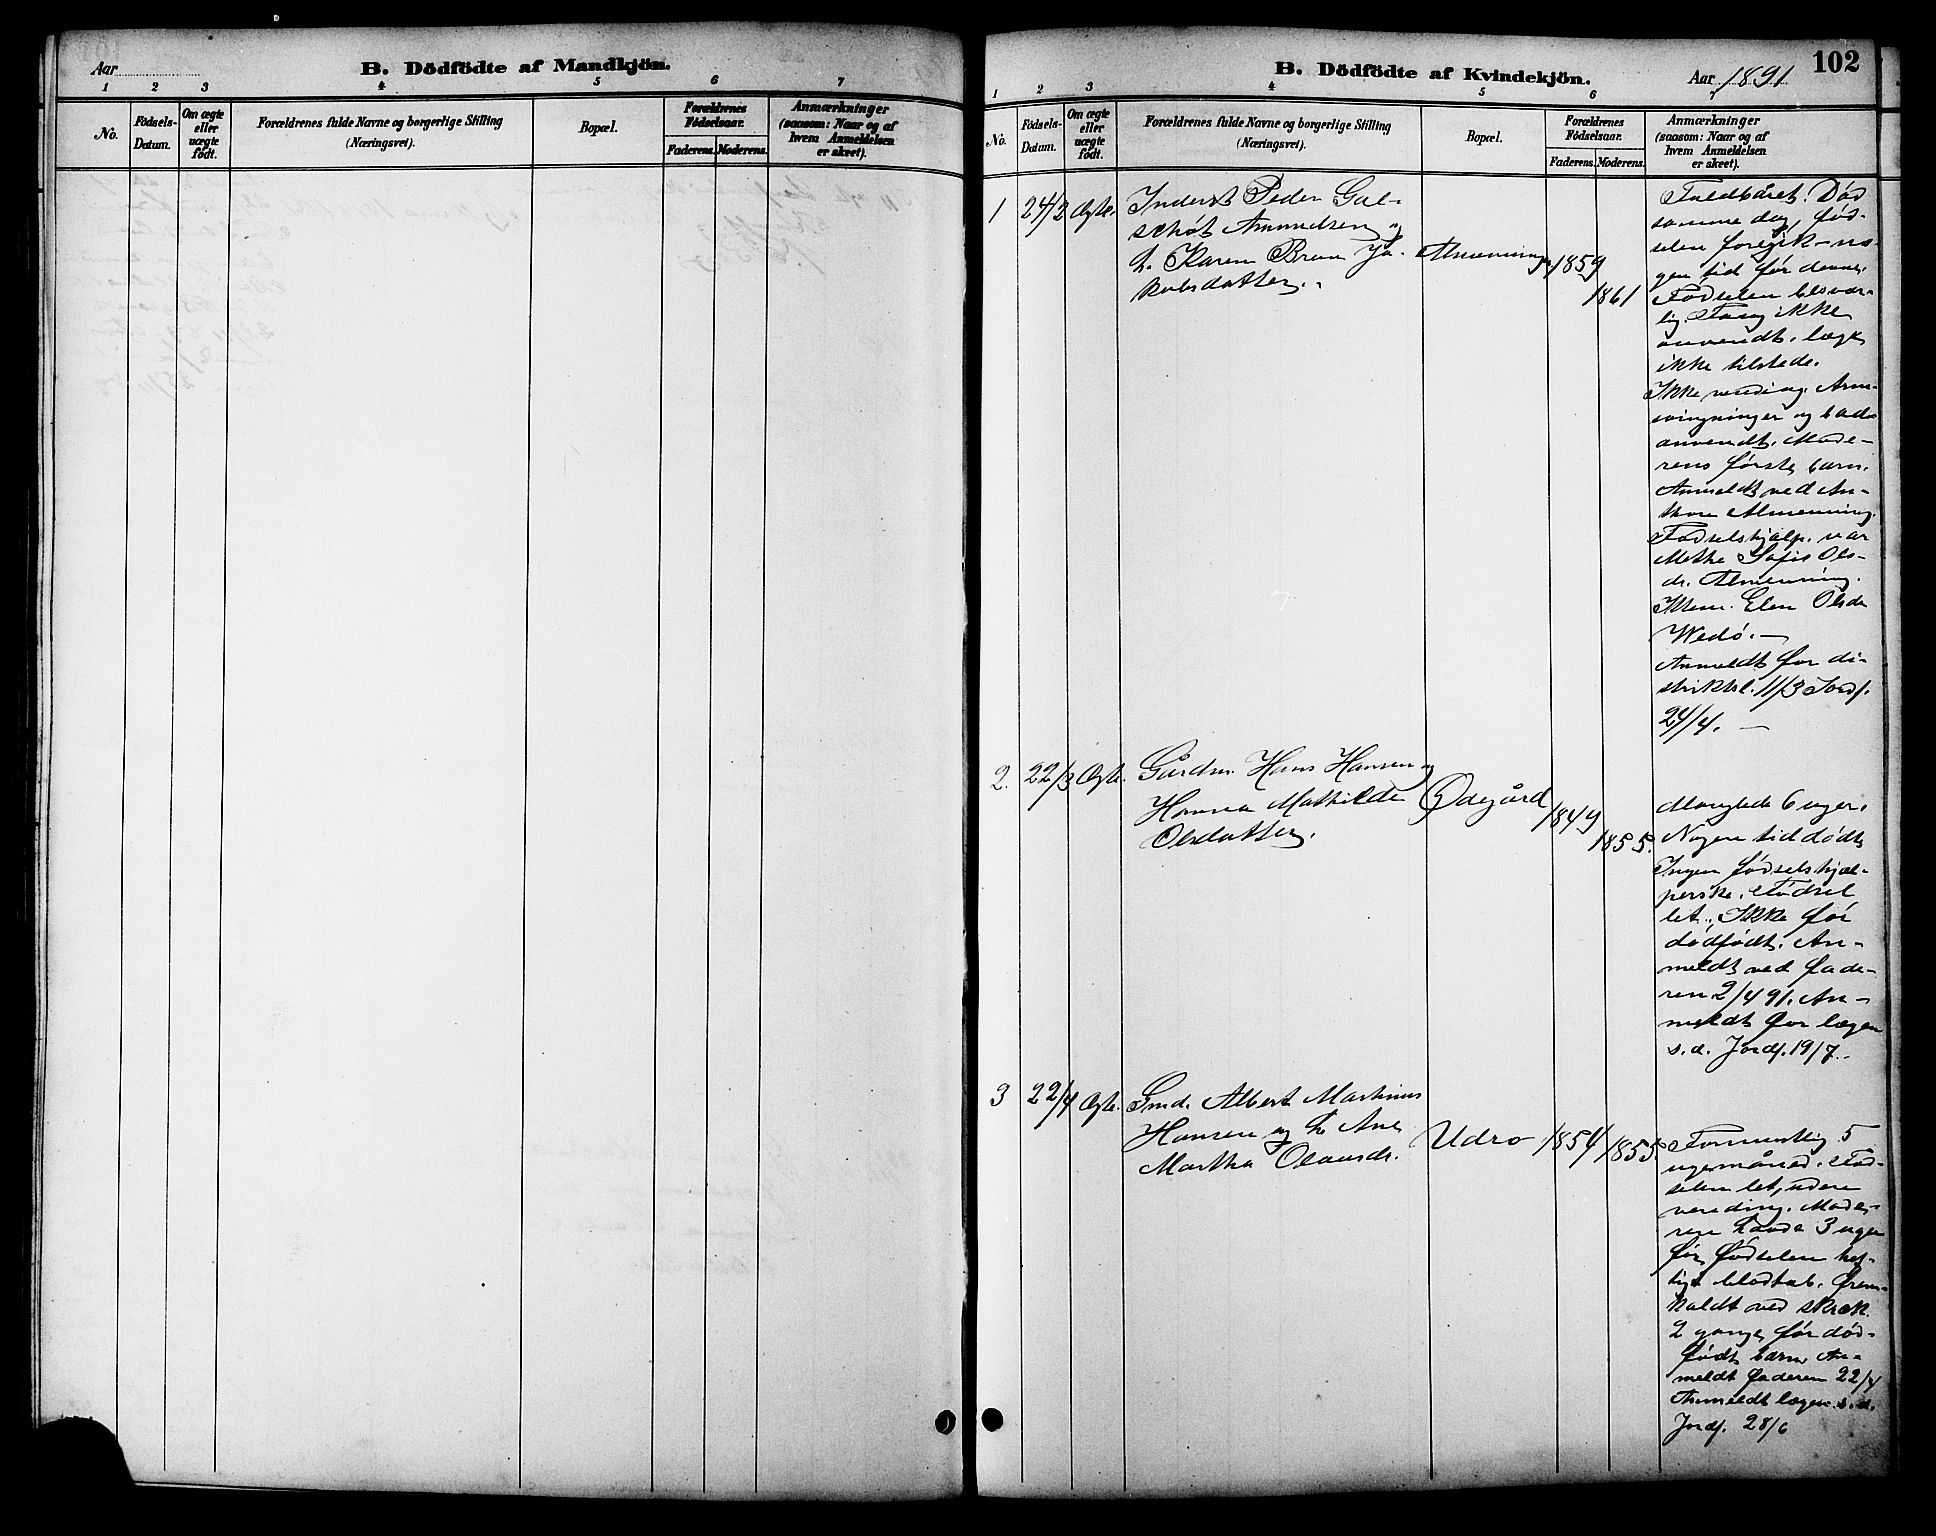 Aar
B. Dödfödte af Mandkjön.
1 2 3 4 5 6 7
No.
Födsels-
Datum.
Om ægte
eller
uægte
födt.
Forældrenes fulde Navne og borgerlige Stilling
(Næringsvei).
Bopæl.
Forældrenes
Födselsaar.
Faderens. Moderens.
Anmærkninger
(saasom: Naar og af
hvem Anmeldelsen
er skeet).
B. Dödfödte af Kvindekjön.
Aar 1891
102
1 2 3 4 5 6 7
No.
Födsels-
Datum.
Om ægte
eller
uægte
födt.
Forældrenes fulde Navne og borgerlige Stilling
(Næringsvei).
Bopæl.
Forældrenes
Födselsaar.
Faderens. Moderens.
Anmærkninger
(saasom: Naar og af
hvem Anmeldelsen
er skeet).
1 24/2 Ægte.
Inderst Peder Gul-
schøt Amundsen og
h. Karen Brun Ja-
kobsdatter.
Almenning
1859
1861
Fuldbåret. Død
samme dag, fød-
selen foregik - no-
gen tid før denne.
Fødselen besvær-
lig. Tang ikke
anvendt. læge
ikke tilstede.
Ikke vending. Arm-
svingninger og bad
anvendt. Mode-
rens første barn.
Anmeldt ved An-
Almenning.
Fødselshjælp. var
Methe Sofie Ols-
dr. Almenning.
Elen Olsdr
Wedø. -
Anmeldt for di-
striktsl. 11/3 Jordf.
24/4. -
2. 22/3 Ægte.
Gårdm. Hans Hansen og
Hanna Mathilde
Olsdatter.
Ødegård
1849
1855.
Manglede 6 uger.
Nogen tid dødt.
Ingen fødselshjæl-
perske. Fødsel
let. Ikke før
dødfødt. An-
meldt ved fade-
ren 2/4 91. An-
meldt for lægen
s. d. Jordf. 19/7.
3 22/4 Ægte.
Gmd. Albert Martinus
Hansen og h. Ane
Martha Olausdr.
Udro
1854
1855
Formentlig 5
ugemåned. Fød-
selen let, uden
vending. Mode-
ren havde 3 uger
før fødselen hef-
tigt blodtab. Frem-
kaldt ved skræk.
2 gange før død-
født barn. An-
meldt faderen 22/4
Anmeldt lægen s. d.
Jordf. 28/6